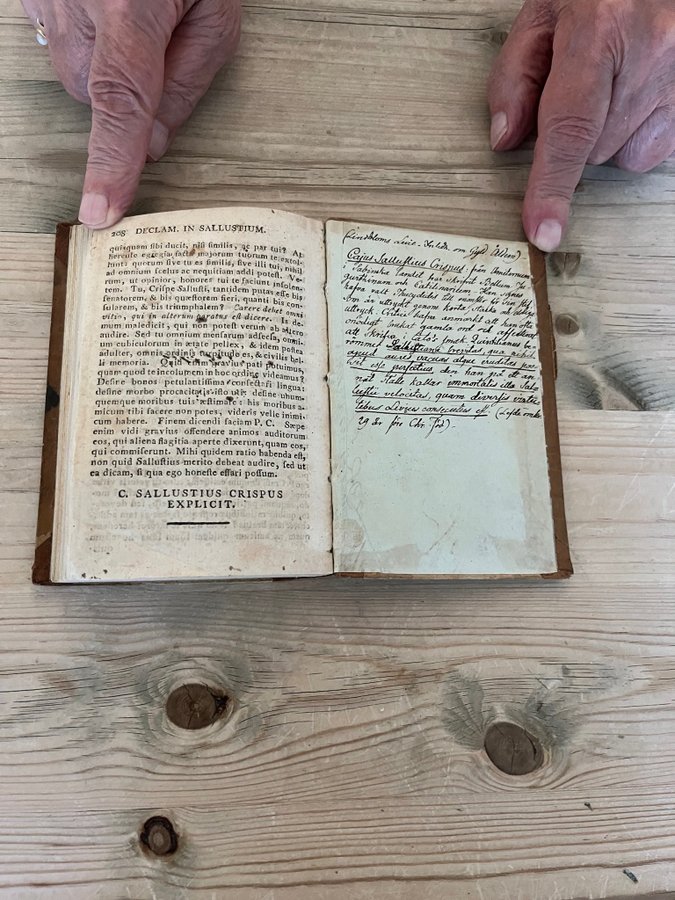 208 DECLAM. IN SALLUSTIUM.
quiſquam ſibi ducit, niſi ſimilis, ac par tui? At
hercule egregia facta majorum tuorum te extol-
lunt: quorum ſive tu es ſimilis, ſive illi tui, nihil
ad omnium ſcelus ac nequitiam addi poteſt. Ve-
rum, ut opinior, honores tui te faciunt inſolen-
tem. Tu, Criſpe Salluſti, tantidem putas eſſe bis
ſenatorem, & bis quæſtorem fieri, quanti bis con-
ſularem, & bis triumphalem? Carere debet omni
vitio, qui in alterum paratus eſt dicere. Is de-
mum maledicit, qui non poteſt verum ab altero
audire. Sed tu omnium menſarum adſecla, omni-
um cubiculorum in ætate pellex, & idem poſtea
adulter, omnis ordinis turpitudo es, & civilis bel-
li memoria. Quid enim gravius pati potuimus,
quam quod te incolumem in hoc ordine videamus?
Deſine bonos petulantiſſima conſectari lingua:
deſine morbo procacitatis iſto uti: deſine unum-
quemque moribus tui æſtimare: his moribus a-
micum tibi facere non potes, videris velle inimi-
cum habere. Finem dicendi faciam P. C. Sæpe
enim vidi gravius offendere animos auditorum
eos, qui aliena flagitia aperte dixerunt, quam eos,
qui commiſerunt. Mihi quidem ratio habenda eſt,
non quid Salluſtius merito debeat audire, ſed ut
ea dicam, ſi qua ego honeſte effari poſſum.
C. SALLUSTIUS CRISPUS
EXPLICIT.
Cajus Sallustius Crispus, från Amiternum i
Sabinska landet har skrifvit Bellum Ju-
gurthinum och Catilinarium. Han
hafva valt Thucydides till
som är uttryckt genom korta, starka och
uttryck. Critici hafva anmärkt att han ofta
onödigt brukat gamla ord och
att skrifva. Catos smak Quintilianus be-
römmer Sallustiana brevitas, qua nihil
apud aures vacuas atque eruditas po-
test esse perfectius, den han på ett an-
nat ställe kallar immortalis illa Sal-
lustii velocitas, quam diversis virtu-
tibus Livius consecutus est. (Lefde
29 å. före Chr. föd)